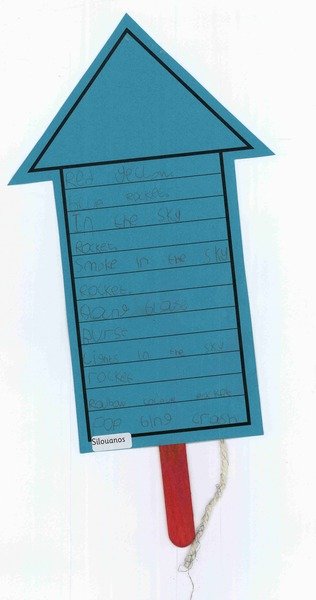 Red yellow
blue rocket
In the sky
Rocket
Smoke in the sky
rocket
Bang
Burst
Lights in the sky
rocket
Rainbow colour rocket
Pop bing crash
Silouanos